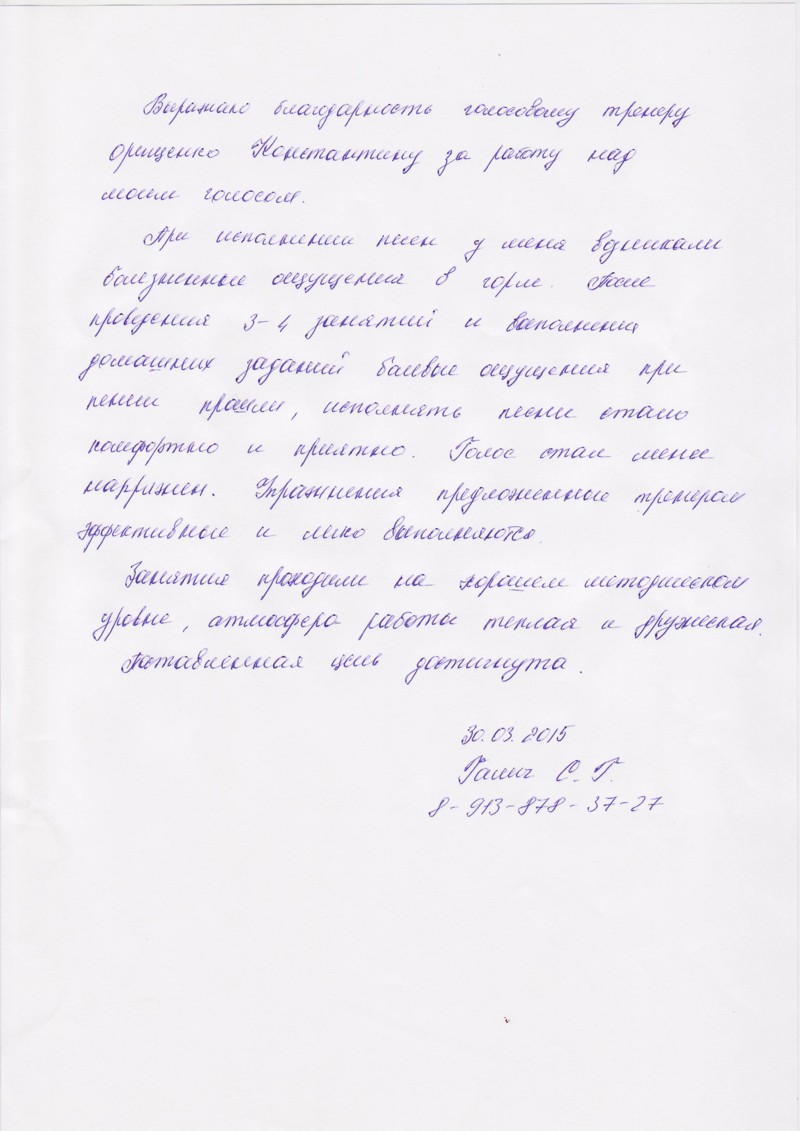 Выражаю благодарность голосовому тренеру
Орищенко Константину за работу над
моим голосом.
При исполнении песен у меня возникали
болезненные ощущения в горле. После
проведения 3-4 занятий и выполнения
домашних заданий болевые ощущения при
пении прошли, исполнять песни стало
комфортно и приятно. Голос стал менее
напряжен. Упражнения предложенные тренером
эффективные и легко выполняются.
Занятия проходили на хорошем методическом
уровне, атмосфера работы теплая и дружеская.
Поставленная цель достигнута.
30.03.2015
Галич С.Г.
8-913-878-37-27